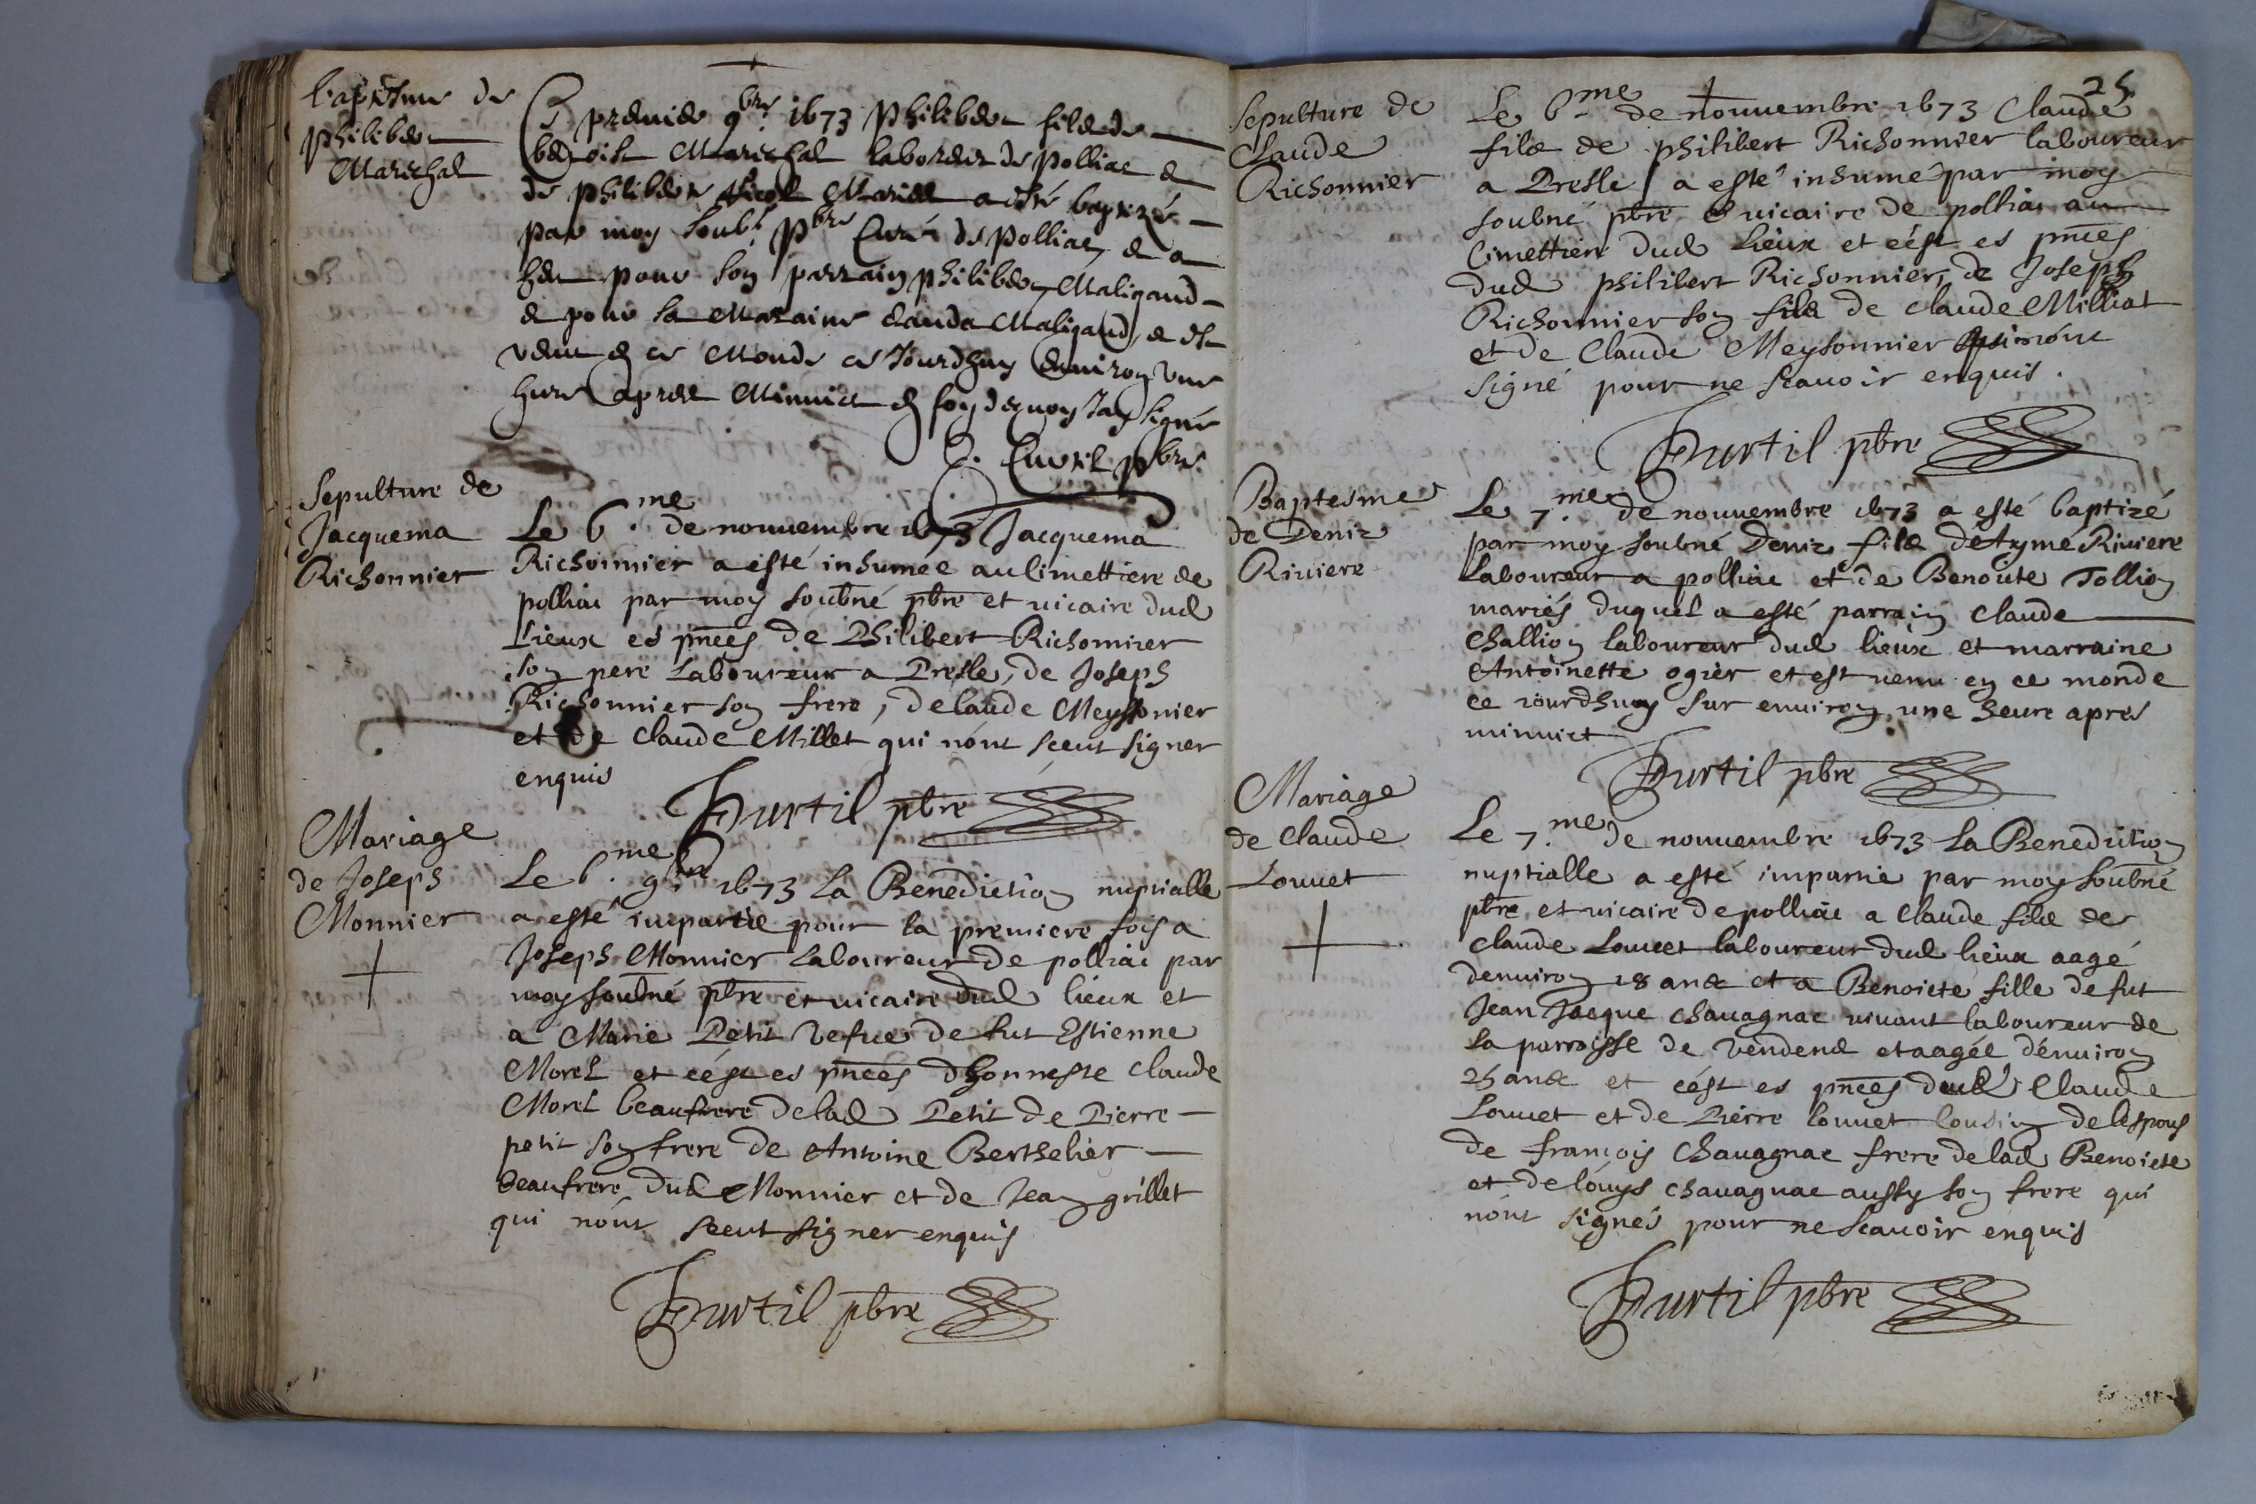 baptesme de
philibert
Mareschal
Ce premier 9bre 1673 Philibert filz de
benoist Mareschal laboreur de polliac &
de philiberte Mariez a esté baptizé
par moy soubné pbre Curé de polliac, & a
heu pour son parrain philibert Maligand
& pour sa Maraine clauda Maligand, & est
venu en ce Monde ce Jourdhuy environ une
heure apres Minuict en foy dequoy Jay signé
Curtil pbre.
Sepulture de
Jacquema
Richonnier
Le 6.me de nouuembre 1673 Jacquema
Richonnier a esté inhumee au Cimettiere de
polliac par moy soubné pbre et vicaire dud
Lieux es pnces de Philibert Richonnier
son pere Laboureur a Presle, de Joseph
Richonnier son frere, de Claude Meysonier
et de Claude Millet qui nónt sceut signer
enquis
Hurtil pbre
Mariage
de Joseph
Monnier
Le 6.me 9bre 1673 La Benediction nuptialle
a esté impartie pour la premiere fois a
Joseph Monnier Laboureur de polliac par
moy soubné pbre et vicaire dud lieux et
a Marie Petit vefue de fut Estienne
Morel et cést es pnces dhonneste Claude
Morel beaufrere de lad Petit de Pierre
petit son frere de Antoine Berthelier
beaufrere dud Monnier et de Jean grillet
qui nónt sceut signer enquis
Hurtil pbre
25
Sepulture de
Claude
Richonnier
Le 6.me de nouuembre 1673 Claude
filz de philibert Richonnier laboureur
a Presle a esté inhumé par moy
soubné pbre & vicaire de polliac au
Cimettiere dud Lieux et cést es pnces
dud philibert Richonnier, de Joseph
Richonnier son filz de Claude Milliat
et de Claude Meysonnier qui nónt
signé pour ne scauoir enquis.
Hurtil pbre
Baptesme
de Deniz
Riuiere
Le 7.me de nouuembre 1673 a esté baptizé
par moy soubné Deniz filz de Aymé Riuiere
Laboureur a polliac et de Benoite Tollion
mariés duquel a esté parrain Claude
Challion laboureur dud lieux et marraine
Antoinette ogier et est venu en ce monde
ce iourdhuy sur environ une heure apres
minuict
Hurtil pbre
Mariage
de Claude
Louuet
Le 7.me de nouuembre 1673 La Benediction
nuptialle a esté impartie par moy soubné
pbre et vicaire de polliac a Claude filz de
Claude Louuet laboureur dud lieux aagé
denuiron 28 ans et a Benoiste fille de fut
Jean Jacque Chauagnac viuant laboureur de
La parroisse de vendens et aagée dénuiron
25 ans et cést es pnces dud Claude
Louuet et de Pierre louuet Cousin de lespoux
de françois Chauagnac frere de lad Benoiste
et de loüys Chauagnac aussy son frere qui
nónt signés pour ne scauoir enquis
Hurtil pbre